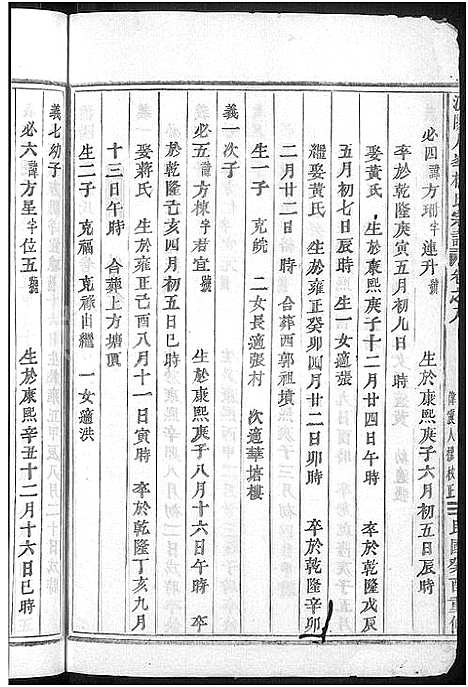 氏宗譜 卷之八 民國癸酉重修
必四諱方珊字連升號 生於康熙庚子六月初五日辰時
卒於乾隆庚寅五月初九日午時
娶黃氏 生於康熙庚子十二月廿四日午時 卒於乾隆戊辰
五月初七日辰時 生一女適張
繼娶黃氏 生於雍正癸卯四月廿二日卯時 卒於乾隆辛卯
二月廿二日 時 合葬西郭祖墳
生一子 克皖 二女長適張村 次適華塔樓
義一次子
必五諱方棟字君宜號 生於康熙庚子八月十六日午時 卒
於乾隆己亥四月初五日巳時
娶蔣氏 生於雍正己酉八月十一日寅時 卒於乾隆丁亥九月
十三日午時 合葬上方塘頂
生二子 克福 克祿出繼 一女適洪
義七幼子
必六諱方星字位五號 生於康熙辛丑十二月十六日巳時